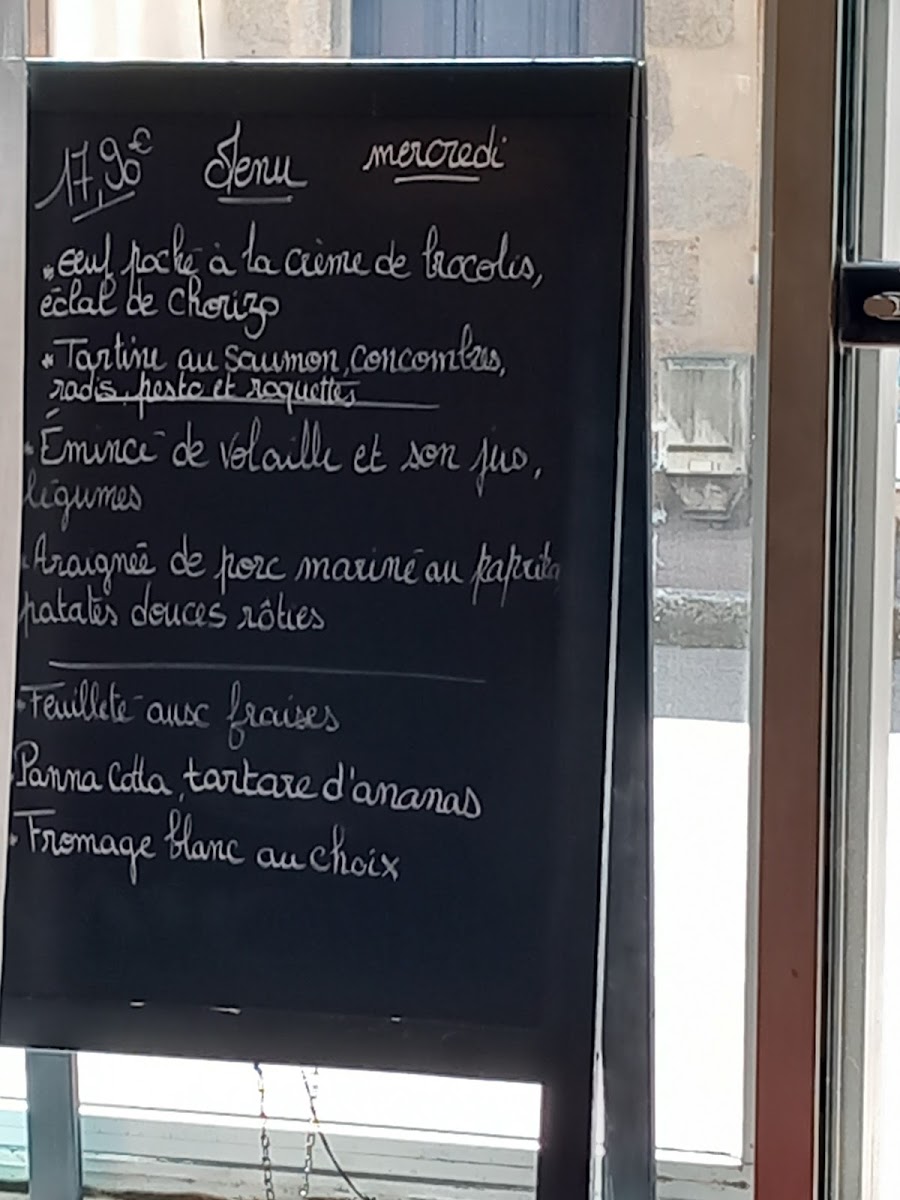 17,90€ Menu mercredi
* Œuf poché à la crème de brocolis,
éclat de chorizo
* Tartine au saumon, concombres,
radis, pesto et roquettes
* Émincé de volaille et son jus,
légumes
* Araignée de porc mariné au paprika
patates douces rôties
* Feuilleté aux fraises
* Panna Cotta, tartare d'ananas
* Fromage blanc au choix